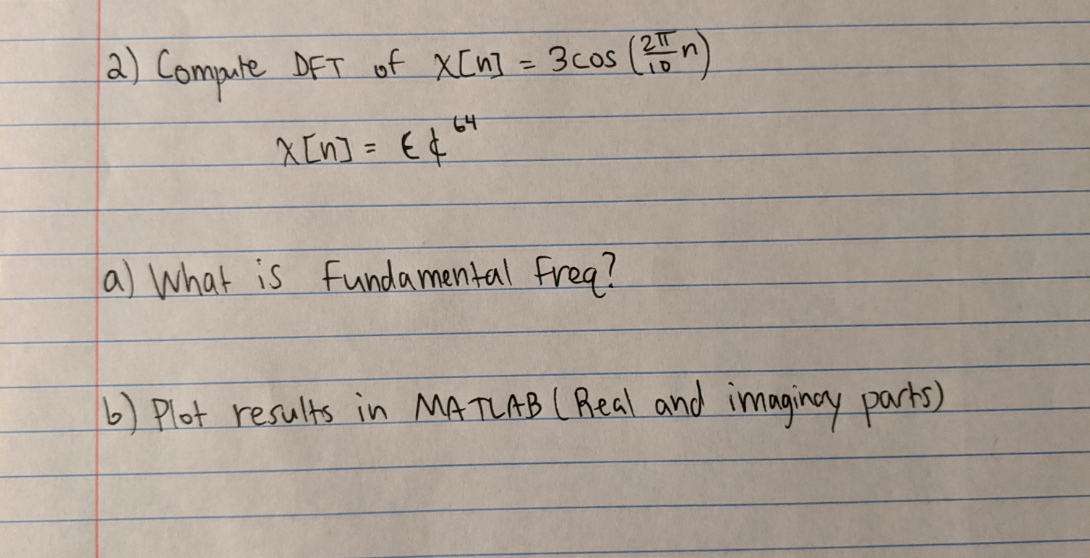 2) Compute DFT of x[n] = 3cos (2π/10 n)
x[n] = ϵ ¢^64
a) What is fundamental freq?
b) Plot results in MATLAB (Real and imaginay parts)